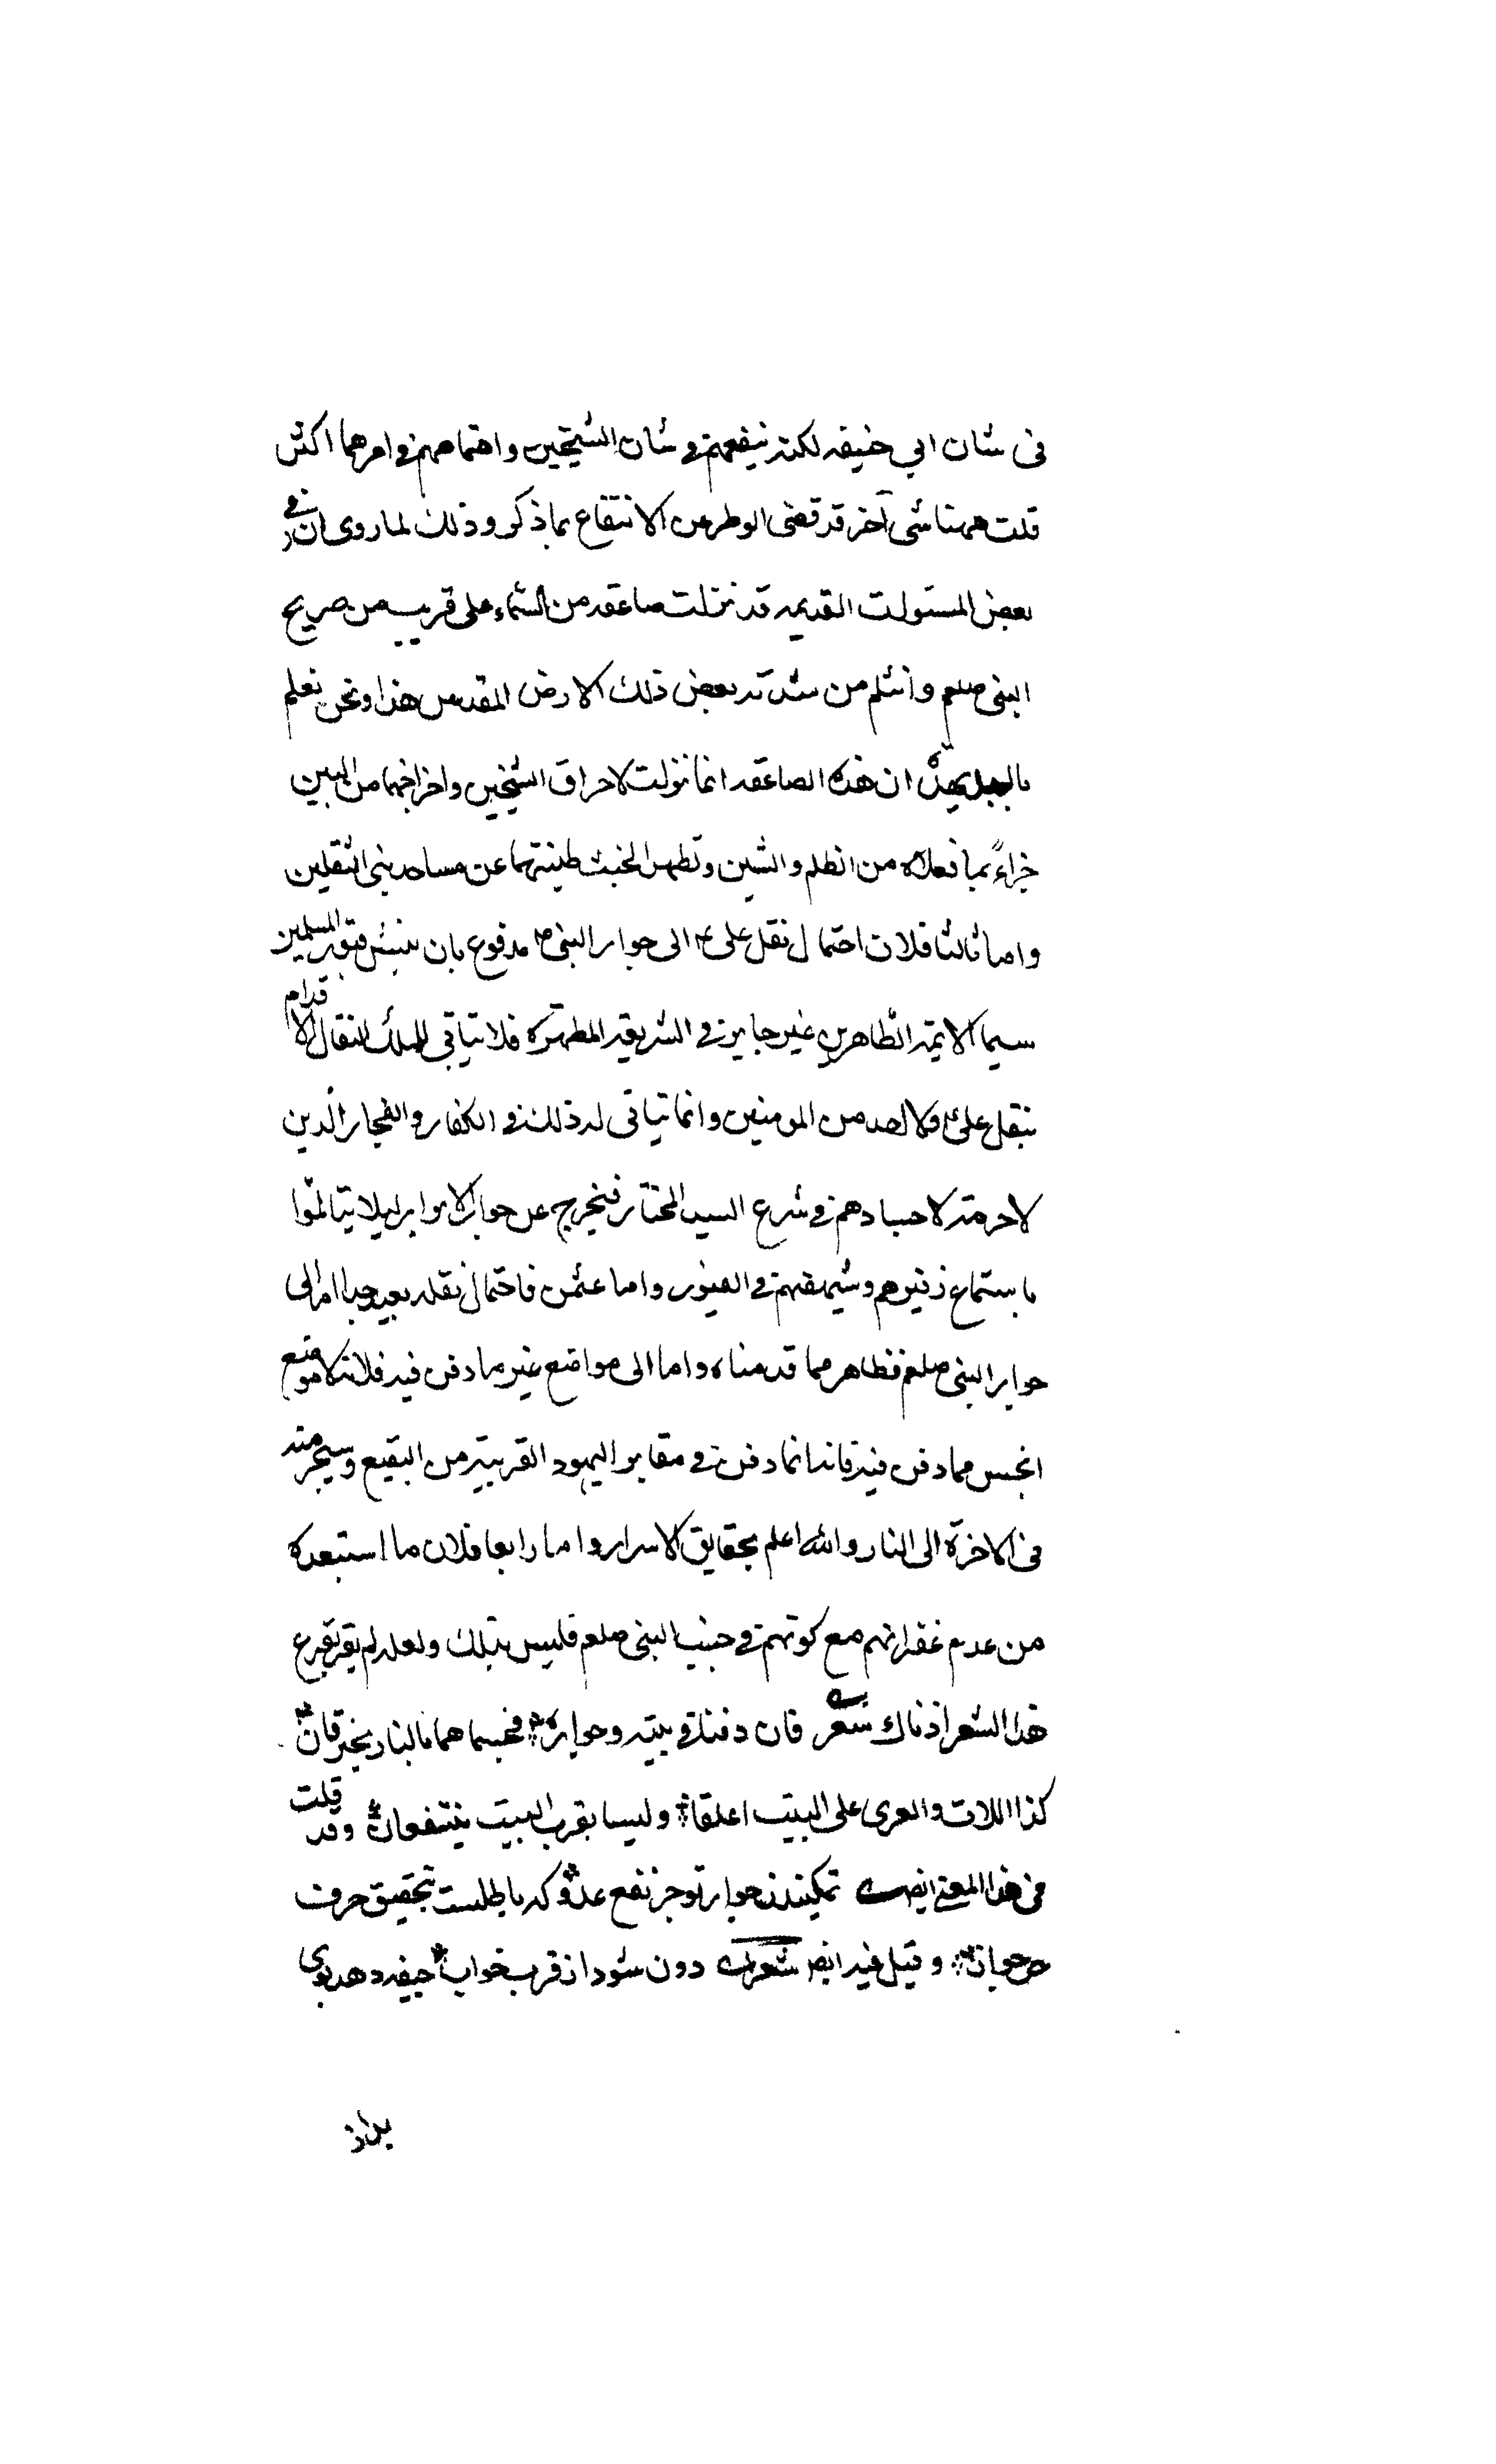 في شان ابي حنيفه لكنه ينفعهم في شان الشيخين واهتمامهم في امرهما اكثر
قلت ههنا شئ آخر قد قضى الوطر عن الانتفاع بما ذكر وذلك لما روى ان في
بعض السنوات القديمه قد نزلت صاعقه من السماء على قريب من ضريح
النبي صلعم وانثلم من شدته بعض ذلك الارض المقدس هذا ونحن نعلم
بالبديهة ان هذه الصاعقه انما نزلت لاحراق الشيخين واخراجهما من البين
جزاءً بما فعلاه من الظلم والشين وتطهيرا لخبث طينتهما عن مساحد نبي الثقلين
واما ثالثا فلان احتمال نقل علي ع الى جوار النبي ص مدفوع بان نبش قبور المسلمين
سيما الائمه الطاهرين غير جايز في الشريعه المطهره فلا يتاتى للملك النقال الاقدام
بنقل علي ع ولا احد من المومنين وانما يتاتى له ذلك في الكفار والفجار الذين
لا حرمة لاجسادهم في شرع السيد المختار فيخرج عن جوار الابرار ليلا يتالموا
باستماع زفيرهم وشهيقهم في القبور واما عثمن فاحتمال نقله بعيد جدا اما الى
جوار النبي صلعم فظاهر مما قدمناه واما الى مواضع غير ما دفن فيه فلانه لا موضع
انجس مما دفن فيه فانه انما دفن في مقابر اليهود القريبة من البقيع وسيجر منه
في الاخرة الى النار والله اعلم بحقايق الاسرار واما رابعا فلان ما استبعده
من عدم غفرانهم مع كونهم في جنب النبي صلعم فليس بتلك ولعله لم يقرع
هذا الشعر اذناك شعر فان دفنا في بيته وجواره فجسماهما بالنار يحترقان
كذا اللات والعزى على البيت اعلقا وليسا بقرب البيت ينتفعان وقد قلت
في هذا المعنى ايضا نميكند ز جوار تو جز نفع عدو كه باطلست بتحقيق حرف
جرجوار وقيل فيه ايضا شعر دون شود از قرب خواب جيفه دهد بوى